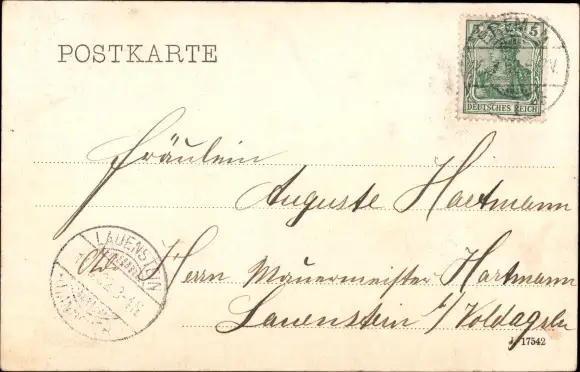 POSTKARTE
BREMEN
5
DEUTSCHES REICH
Fräulein
Auguste Hartmann
LAUENSTEIN
Herrn Mauermeister Hartmann
Lauenstein b/Voldagsen
17542